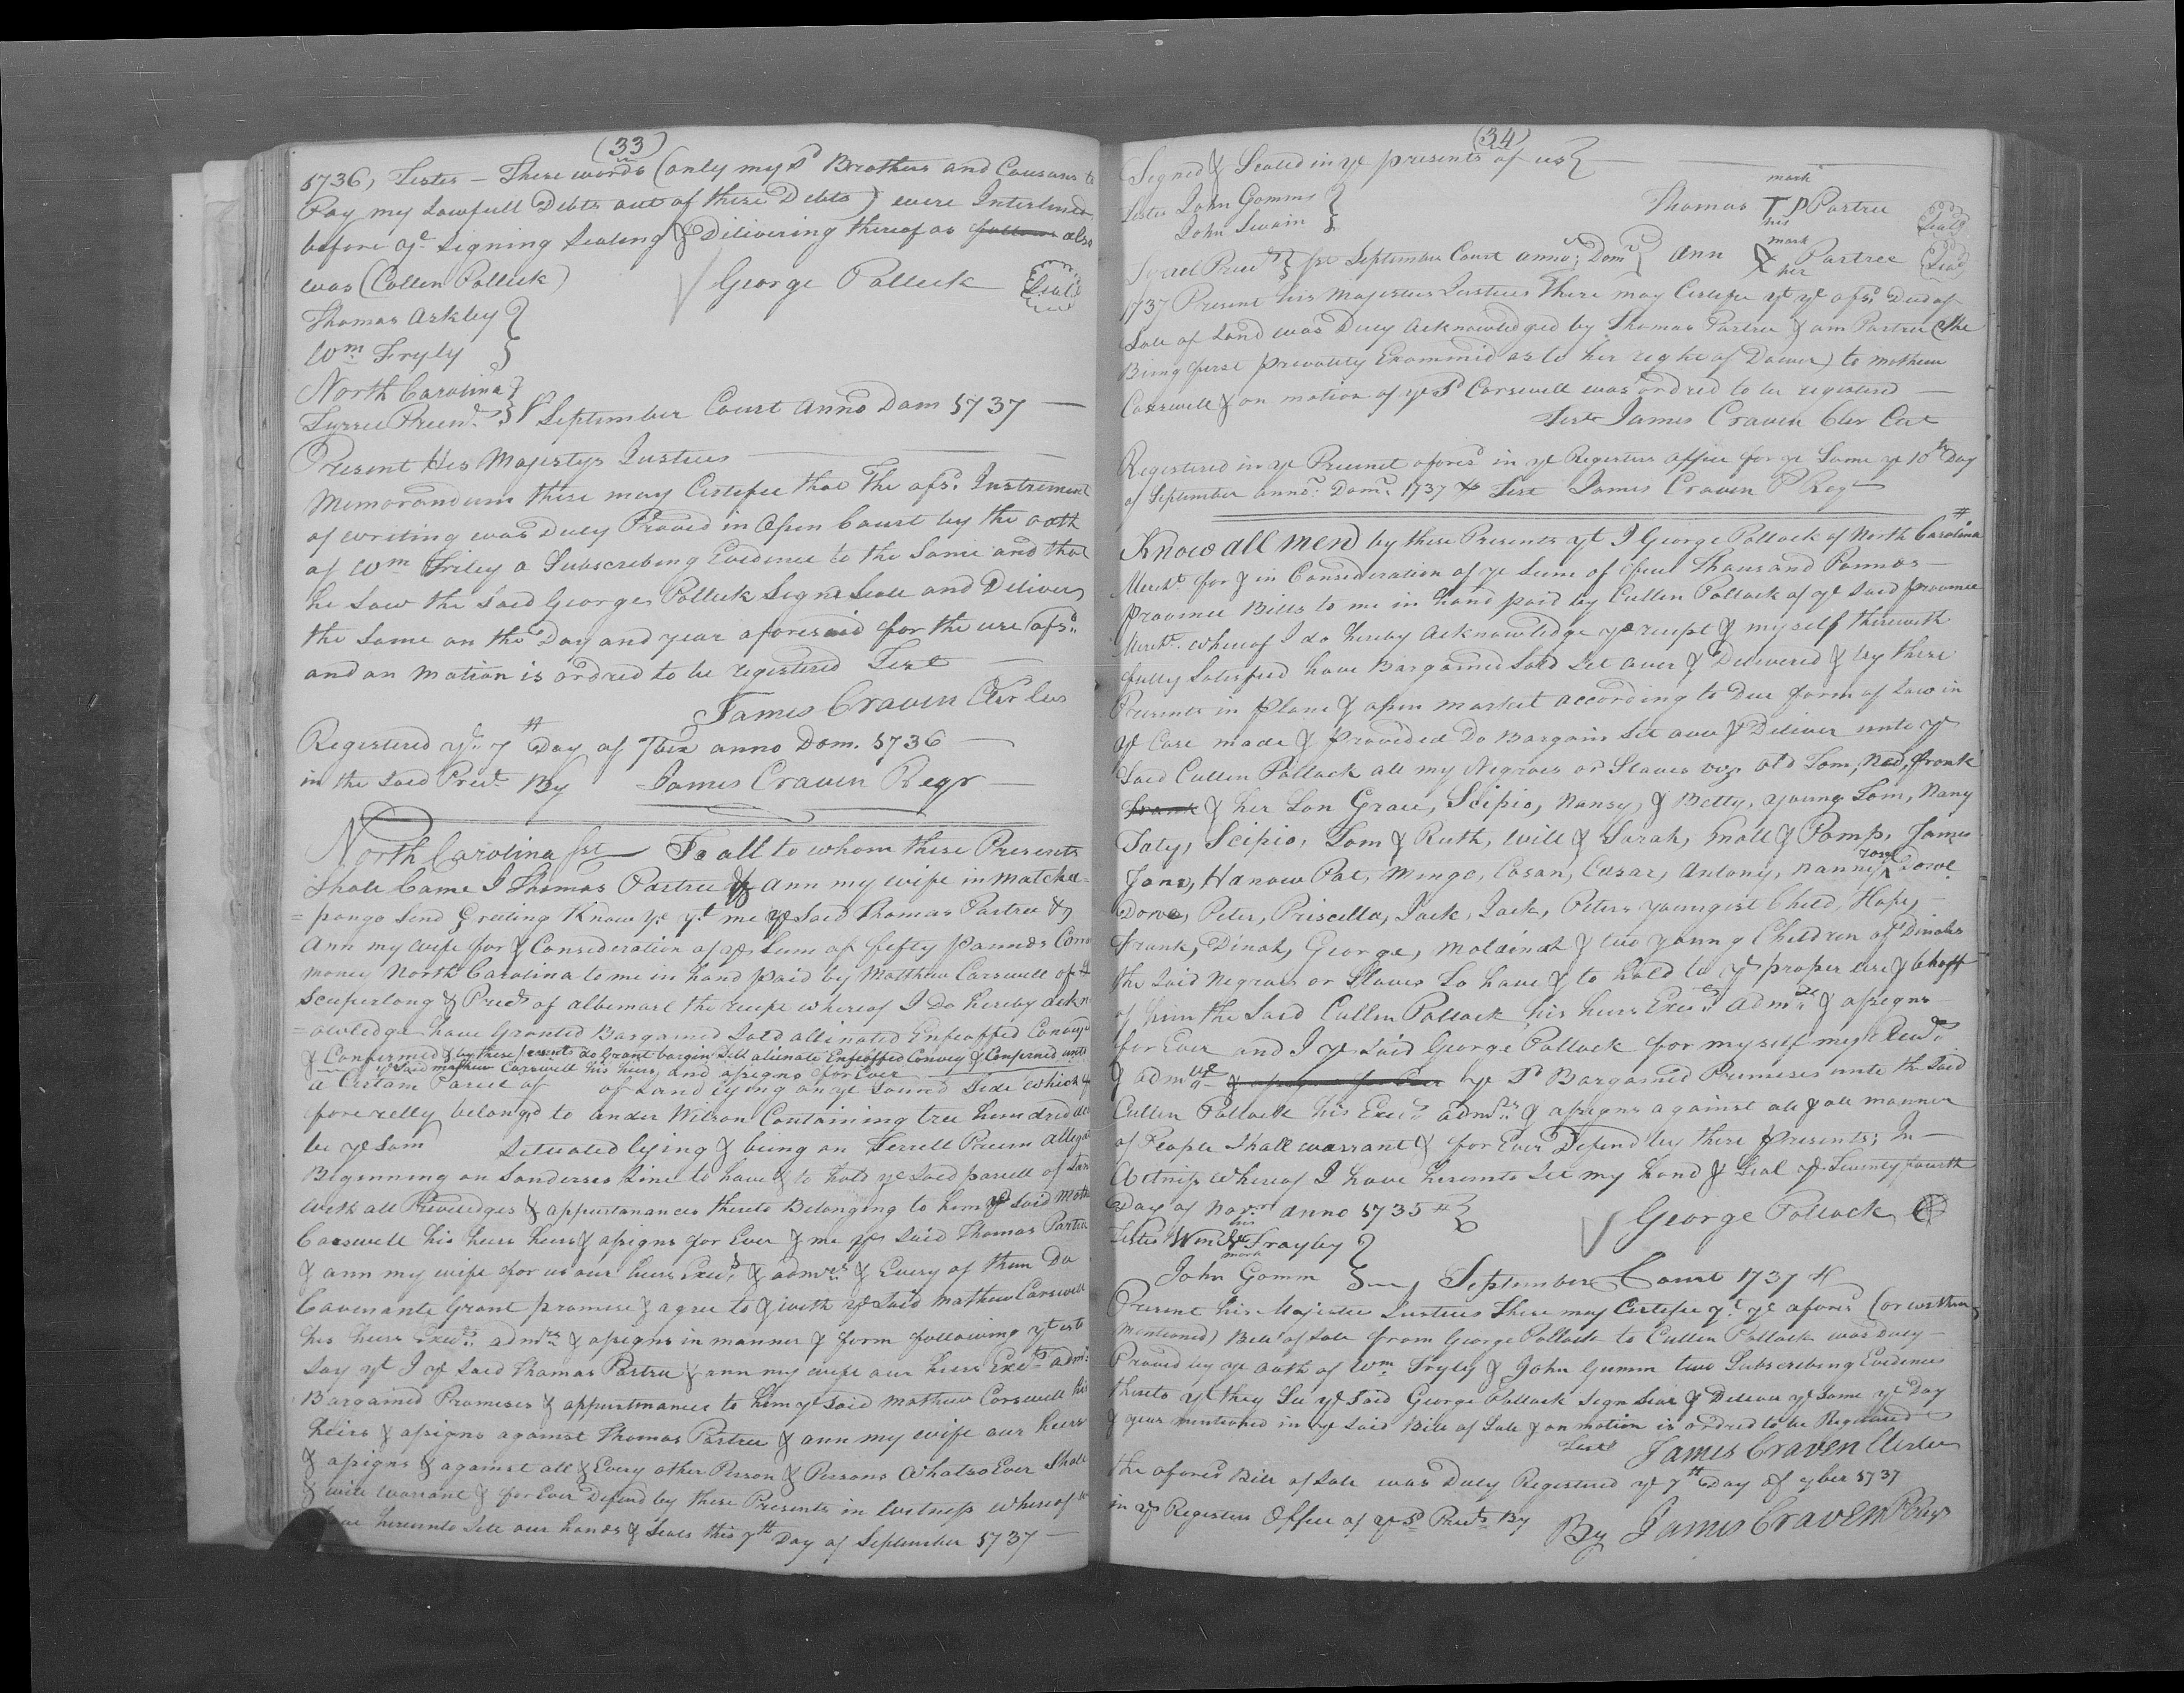 (33)
1736, Testes — These words (only my sd Brothers and Cousans to
Pay my Lawfull Debts out of there Debts) were Interlined
before ye Signing Sealing & Delivering thereof as follows also
was (Cullen Pollock)
George Pollock Seal
Thomas Arkley }
Wm Fryly }
North Carolina }
Tyrrel Precn. } September Court Anno Dom 1737 —
Present His Majestys Justices
Memorandum these may Certefie that The afsd. Instrement
of writing was Duly Proved in Open Court by the oath
of Wm Friley a Subscrebing Evidence to the Same and that
he Saw the Said George Pollock Signe Seale and Deliver
the Same on the Day and year aforesaid for the use afsd.
and on Motion is ordred to be registered Test —
James Craven Cler Cur
Registered ye 7th Day of 7ber anno Dom. 1736 —
in the Said Prect. By James Craven Regr —
North Carolina sst — To all to whom these Presents
Shall Came I Thomas Partree & Ann my wife in Matcha-
= pongo Send Greeting Know ye yt me ye Said Thomas Partree &
Ann my wife for & Consideration of ye Sum of fifty Pounds Com
money North Carolina to me in hand paid by Matthew Carswell of
Scuperlong & Precs. of albemarl the recept whereof I Do hereby Ackn
= owledge have Granted Bargained Sold allinated Enfeoffed Convey'd
& Confirmed & by these presents do Grant bargin Sell alienate Enfeoffed Convey & Confermed unto
ye Said Mathew Carswell his heirs, and asigns for Ever
a Certam Parcel of of Land lying on ye Sound Side which
forerelly belongd to ander Wilson Containing tree hundrid
be ye Sam Setuated lying & being on Terrell Precn
Beginning on Sanderses Line to have & to hold ye Said parcell of
with all Priveledges & appurtanances thereto Belonging to him ye Said
Carswell his heirs heirs & asigns for Ever & me ye Said Thomas Partree
& ann my wife for us our heirs Execrs. & admrs. & Every of them Do
Covenante Grant promise & agree to & with ye Said Mathew Carswell
his heirs Execrs. admrs. & asigns in manner & form following yt is to
Say yt I ye Said Thomas Partree & ann my wife our heirs Execrs. admrs
Bargained Premises & appurtinances to him ye Said Mathew Carswell his
heirs & asigns against Thomas Partree & ann my wife our heirs
& asigns & against all & Every other Person & Persons Whatsoever Shall
& will warrant & for Ever Defend by these Presents in Witness Whereof
have hereunto Sett our hands & Seals this 7th Day of September 1737 —
(34)
Signed & Sealed in ye presents of us }
Testes John Gomms }
John Swain }
mark
Thomas T P Partree Seal
his
Tyrrel Precn. } sst September Court anno: Dom: } Ann mark Partree Seal
her
1737 Present his Majesties Justices These may Certefie yt ye afsd. Deed of
Sale of Land was Duly Acknowledged by Thomas Partree & ann Partree (she
Being first Privately Exammied as to her right of Dower) to Mathew
Carswell & on motion of ye sd Carswell was ordred to be registered —
Test James Craven Cler Cur
Registered in ye Precinct aforesd in ye Registers office for ye Same ye 10th Day
of September anno: Dom: 1737 Test James Craven P Reg
Know all men by these Presents yt I George Pollock of North Carolina
Mercht. for & in Consideration of ye Sum of five Thousand Pounds —
Province Bills to me in hand paid by Cullen Pollock of ye Said province
Mercht. whereof I do hereby Acknowledge ye recept & myself therewith
fully Satisfied have Bargained Sold Set over & Delivered & by these
Presents in Plane & open market according to Due form of Law in
ye Case made & Provided Do Bargain Set over & Deliver unto ye
Said Cullen Pollock all my Negroes or Slaves viz. old Tom, Ned, frank
Frank & her Son Grace, Scipio, Nansy, & Betty, young Tom, Nany
Taty, Scipio, Tom & Ruth, Will & Sarah, Moll & Pomp, James
Jane, Hanow Pat, Mingo, Cosan, Cesar, Antony, Nanny Dowe
Dowe, Peter, Priscella, Jack, Jack, Peters youngist Child, Hope,
frank, Dinah, George, Moldinah & two young Children of Dinahs
the Said Negroes or Slaves To have & to hold to ye proper use & behoff
of him the Said Cullen Pollock his heirs Execrs. admrs. & asigns
for Ever and I ye Said George Pollock for myself my
& admrs & asigns for Ever ye sd Bargained Premises unto the Said
Cullen Pollock his Execrs. admrs. & asigns against all & all manner
of People Shall warrant & for Ever Defend by these presents; In —
Witness Whereof I have hereunto Set my hand & Seal ye Twenty fourth
Day of Novr anno 1735 }
George Pollock
Testes Wm his mark Frayley }
John Gomm } September Court 1737
Present his Majesties Justices These may Certefie yt ye aforesd (or within
mentioned) Bill of Sale from George Pollock to Cullen Pollock was duly —
Proved by ye oath of Wm Fryley & John Gumm two Subscrebing Evidences
thereto yt they See ye Said George Pollock Sign Seal & Deliver ye Same ye Day
& year mentioned in ye Said Bill of Sale & on motion is ordred to be Registered
Test James Craven Cler Cur
the aforesd Bill of Sale was Duly Registered ye 7th Day of 9ber 1737
in ye Registers Office of ye sd Prects By
By James Craven P Reg